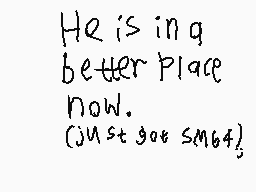 He is in a
better place
now.
(just got SM64)